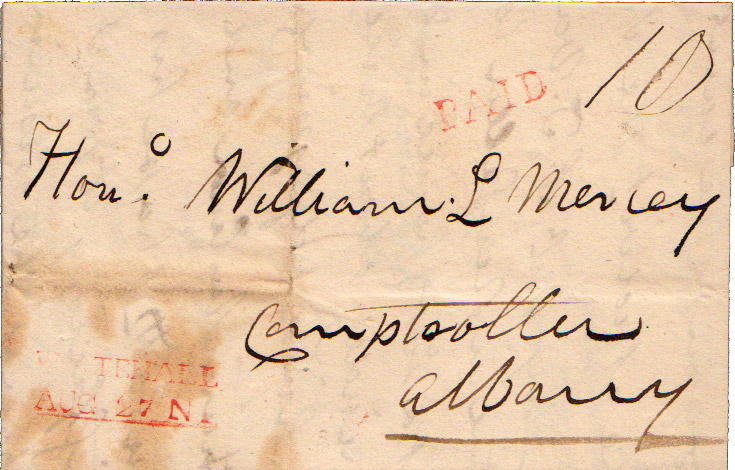 PAID 10
Hon.º William. L Mercey
Comptroller
Albany
TEHALL
AUG 27 N.